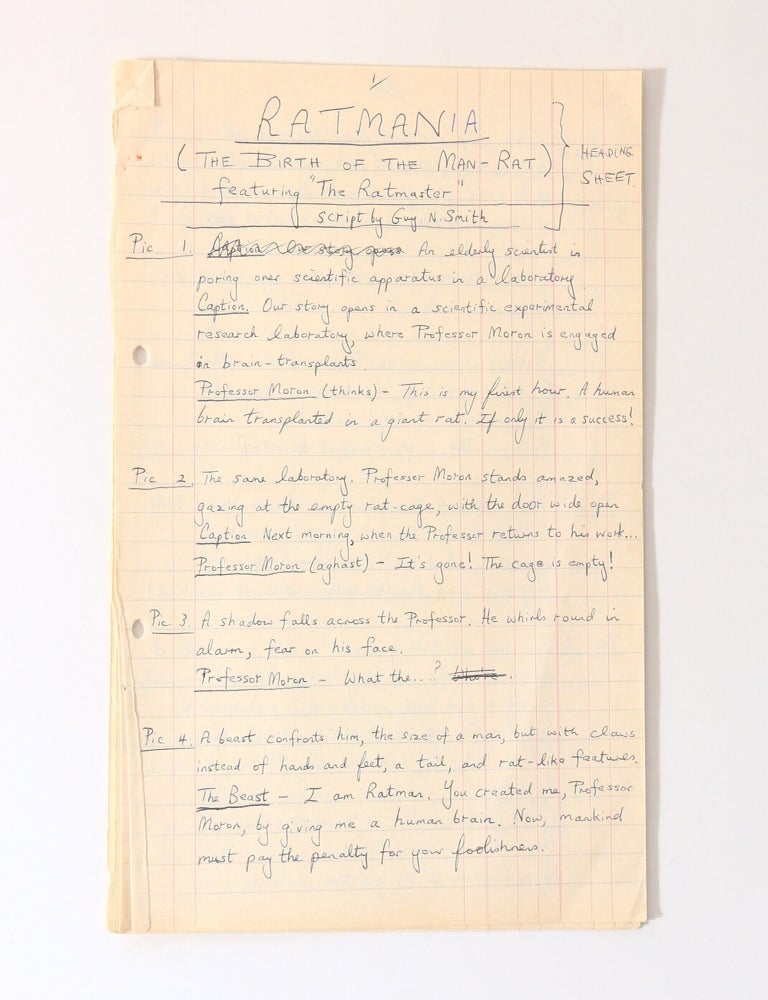 1/
RATMANIA
(THE BIRTH OF THE MAN-RAT)
HEADING
SHEET
featuring "The Ratmaster"
script by Guy. N. Smith
Pic 1. Caption Our story opens An elderly scientist is
poring over scientific apparatus in a laboratory
Caption. Our story opens in a scientific experimental
research laboratory, where Professor Moron is engaged
in brain-transplants.
Professor Moron (thinks) - This is my finest hour. A human
brain transplanted in a giant rat. If only it is a success!
Pic 2. The same laboratory. Professor Moron stands amazed,
gazing at the empty rat-cage, with the door wide open
Caption Next morning, when the Professor returns to his work...
Professor Moron (aghast) - It's gone! The cage is empty!
Pic 3. A shadow falls across the Professor. He whirls round in
alarm, fear on his face.
Professor Moron - What the....?
Pic 4. A beast confronts him, the size of a man, but with claws
instead of hands and feet, a tail, and rat-like features.
The Beast - I am Ratman. You created me, Professor
Moron, by giving me a human brain. Now, mankind
must pay the penalty for your foolishness.